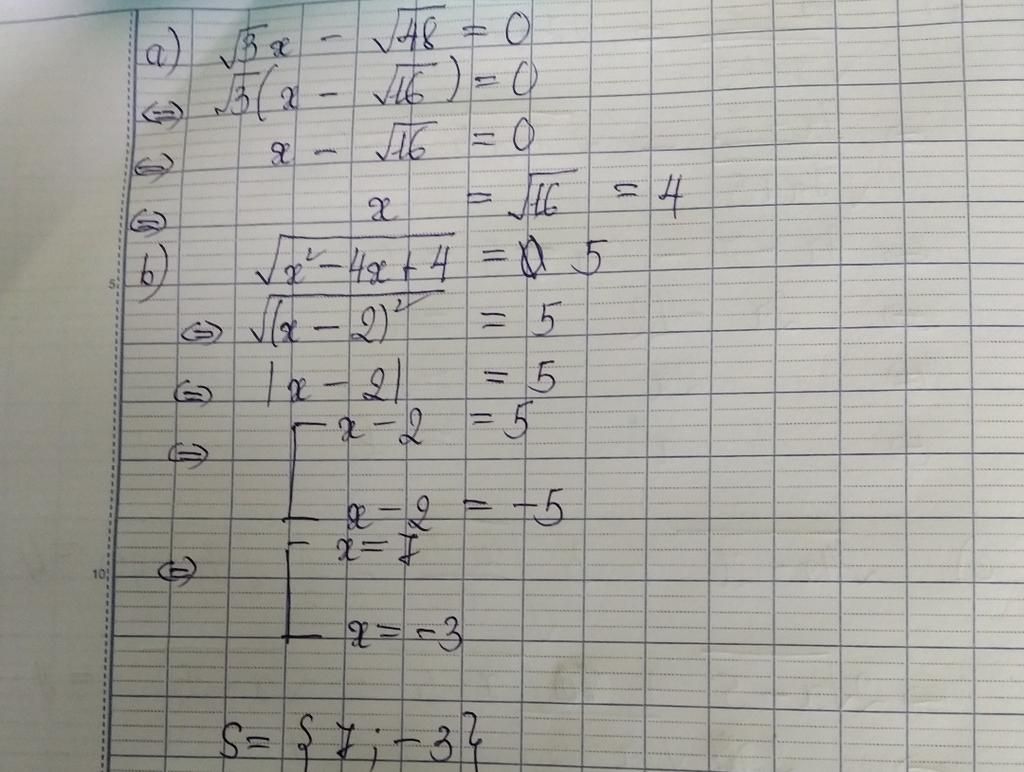 a) √3x - √48 = 0
⇔ √3(x - √16) = 0
⇔ x - √16 = 0
⇔ x = √16 = 4
b) √(x² - 4x + 4) = 5
5
⇔ √((x - 2)²) = 5
⇔ |x - 2| = 5
⇔ [ x - 2 = 5
x - 2 = -5
⇔ [ x = 7
10
x = -3
S = {7; -3}